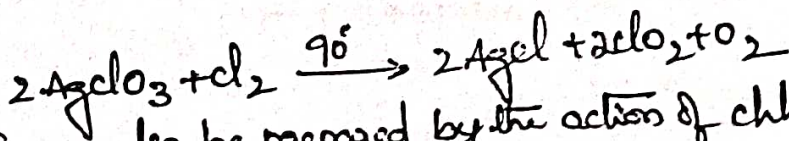 2AgclO₃ + cl₂ 90° → 2Agcl + 2clO₂ + O₂
be by the action of chl